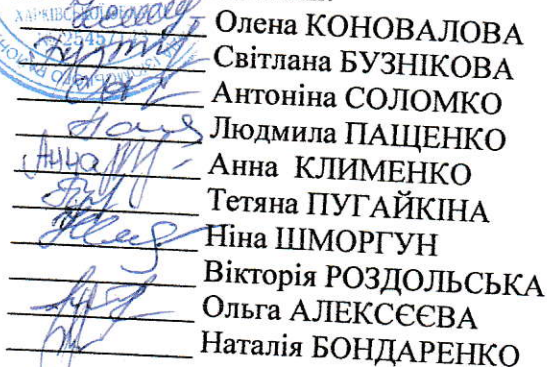 ХАРКІВСЬКОЇ
Олена КОНОВАЛОВА
Світлана БУЗНІКОВА
Антоніна СОЛОМКО
Людмила ПАЩЕНКО
Анна КЛИМЕНКО
Тетяна ПУГАЙКІНА
Ніна ШМОРГУН
Вікторія РОЗДОЛЬСЬКА
Ольга АЛЕКСЄЄВА
Наталія БОНДАРЕНКО